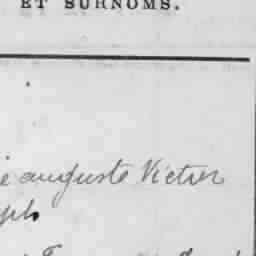 ET SURNOMS.
e auguste Victor
ph